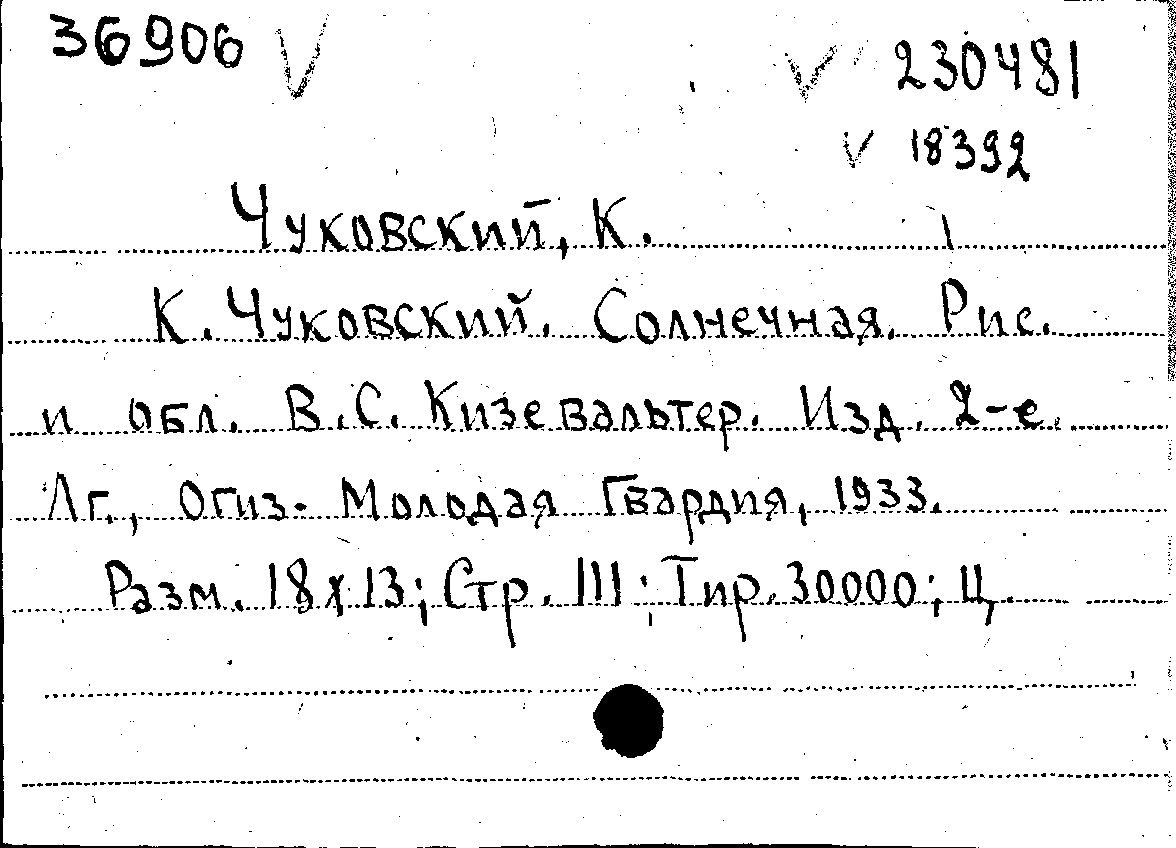 36906 V V 230481
V 18392
Чуковский, К.
К. Чуковский. Солнечная. Рис.
и обл. В.С. Кизевальтер. Изд. 2-е.
Лг., Огиз- Молодая Гвардия, 1933.
Разм. 18х13; Стр. 111; Тир. 30000; Ц.